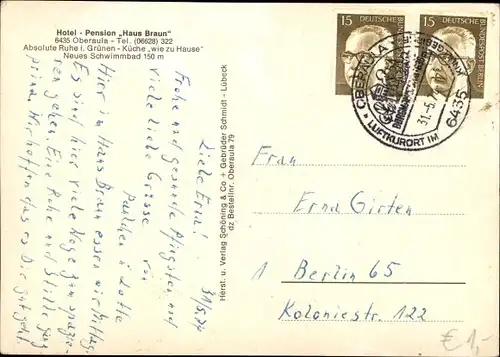 Hotel - Pension „Haus Braun"
6435 Oberaula - Tel. (06628) 322
Absolute Ruhe i. Grünen - Küche „wie zu Hause"
Neues Schwimmbad 150 m
31/5.74
Liebe Erna!
Frohe und gesunde Pfingsten und
viele liebe Grüsse von
Paulchen u. Lotte
Hier im Haus Braun essen wir Mittag.
Es sind hier viele Wege zum spazie-
ren gehen. Eine Ruhe und Stille ganz
prima. Wir hoffen das es Dir gut geht.
Herst. u. Verlag Schöning & Co + Gebrüder Schmidt - Lübeck
dz Bestellnr. Oberaula 79
15 DEUTSCHE BUNDESPOST BERLIN
15 DEUTSCHE BUNDESPOST BERLIN
OBERAULA
6435
31.-5.74
LUFTKURORT IM
Frau
Erna Girten
1 Berlin 65
Koloniestr. 122
€ 1,-